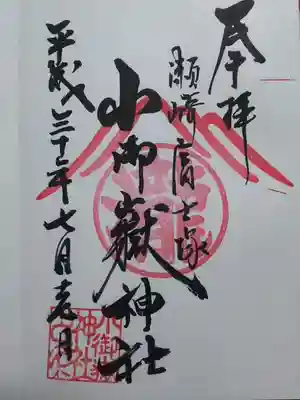 奉拝
瀬崎富士塚
小御嶽神社
平成三十年七月
小御嶽
神社